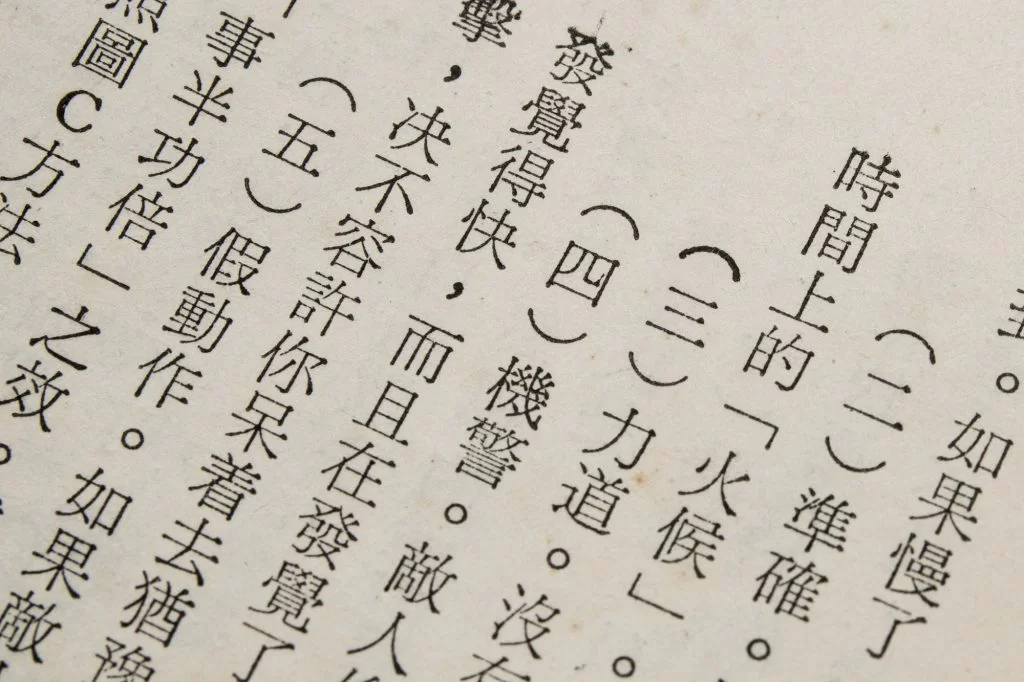 。如果慢了
（二）準確。
時間上的「火候」。
（三）力道。沒有
（四）機警。敵人
發覺得快，而且在發覺了
擊，决不容許你呆着去猶豫
（五）假動作。如果敵
事半功倍」之效。
照圖C方法